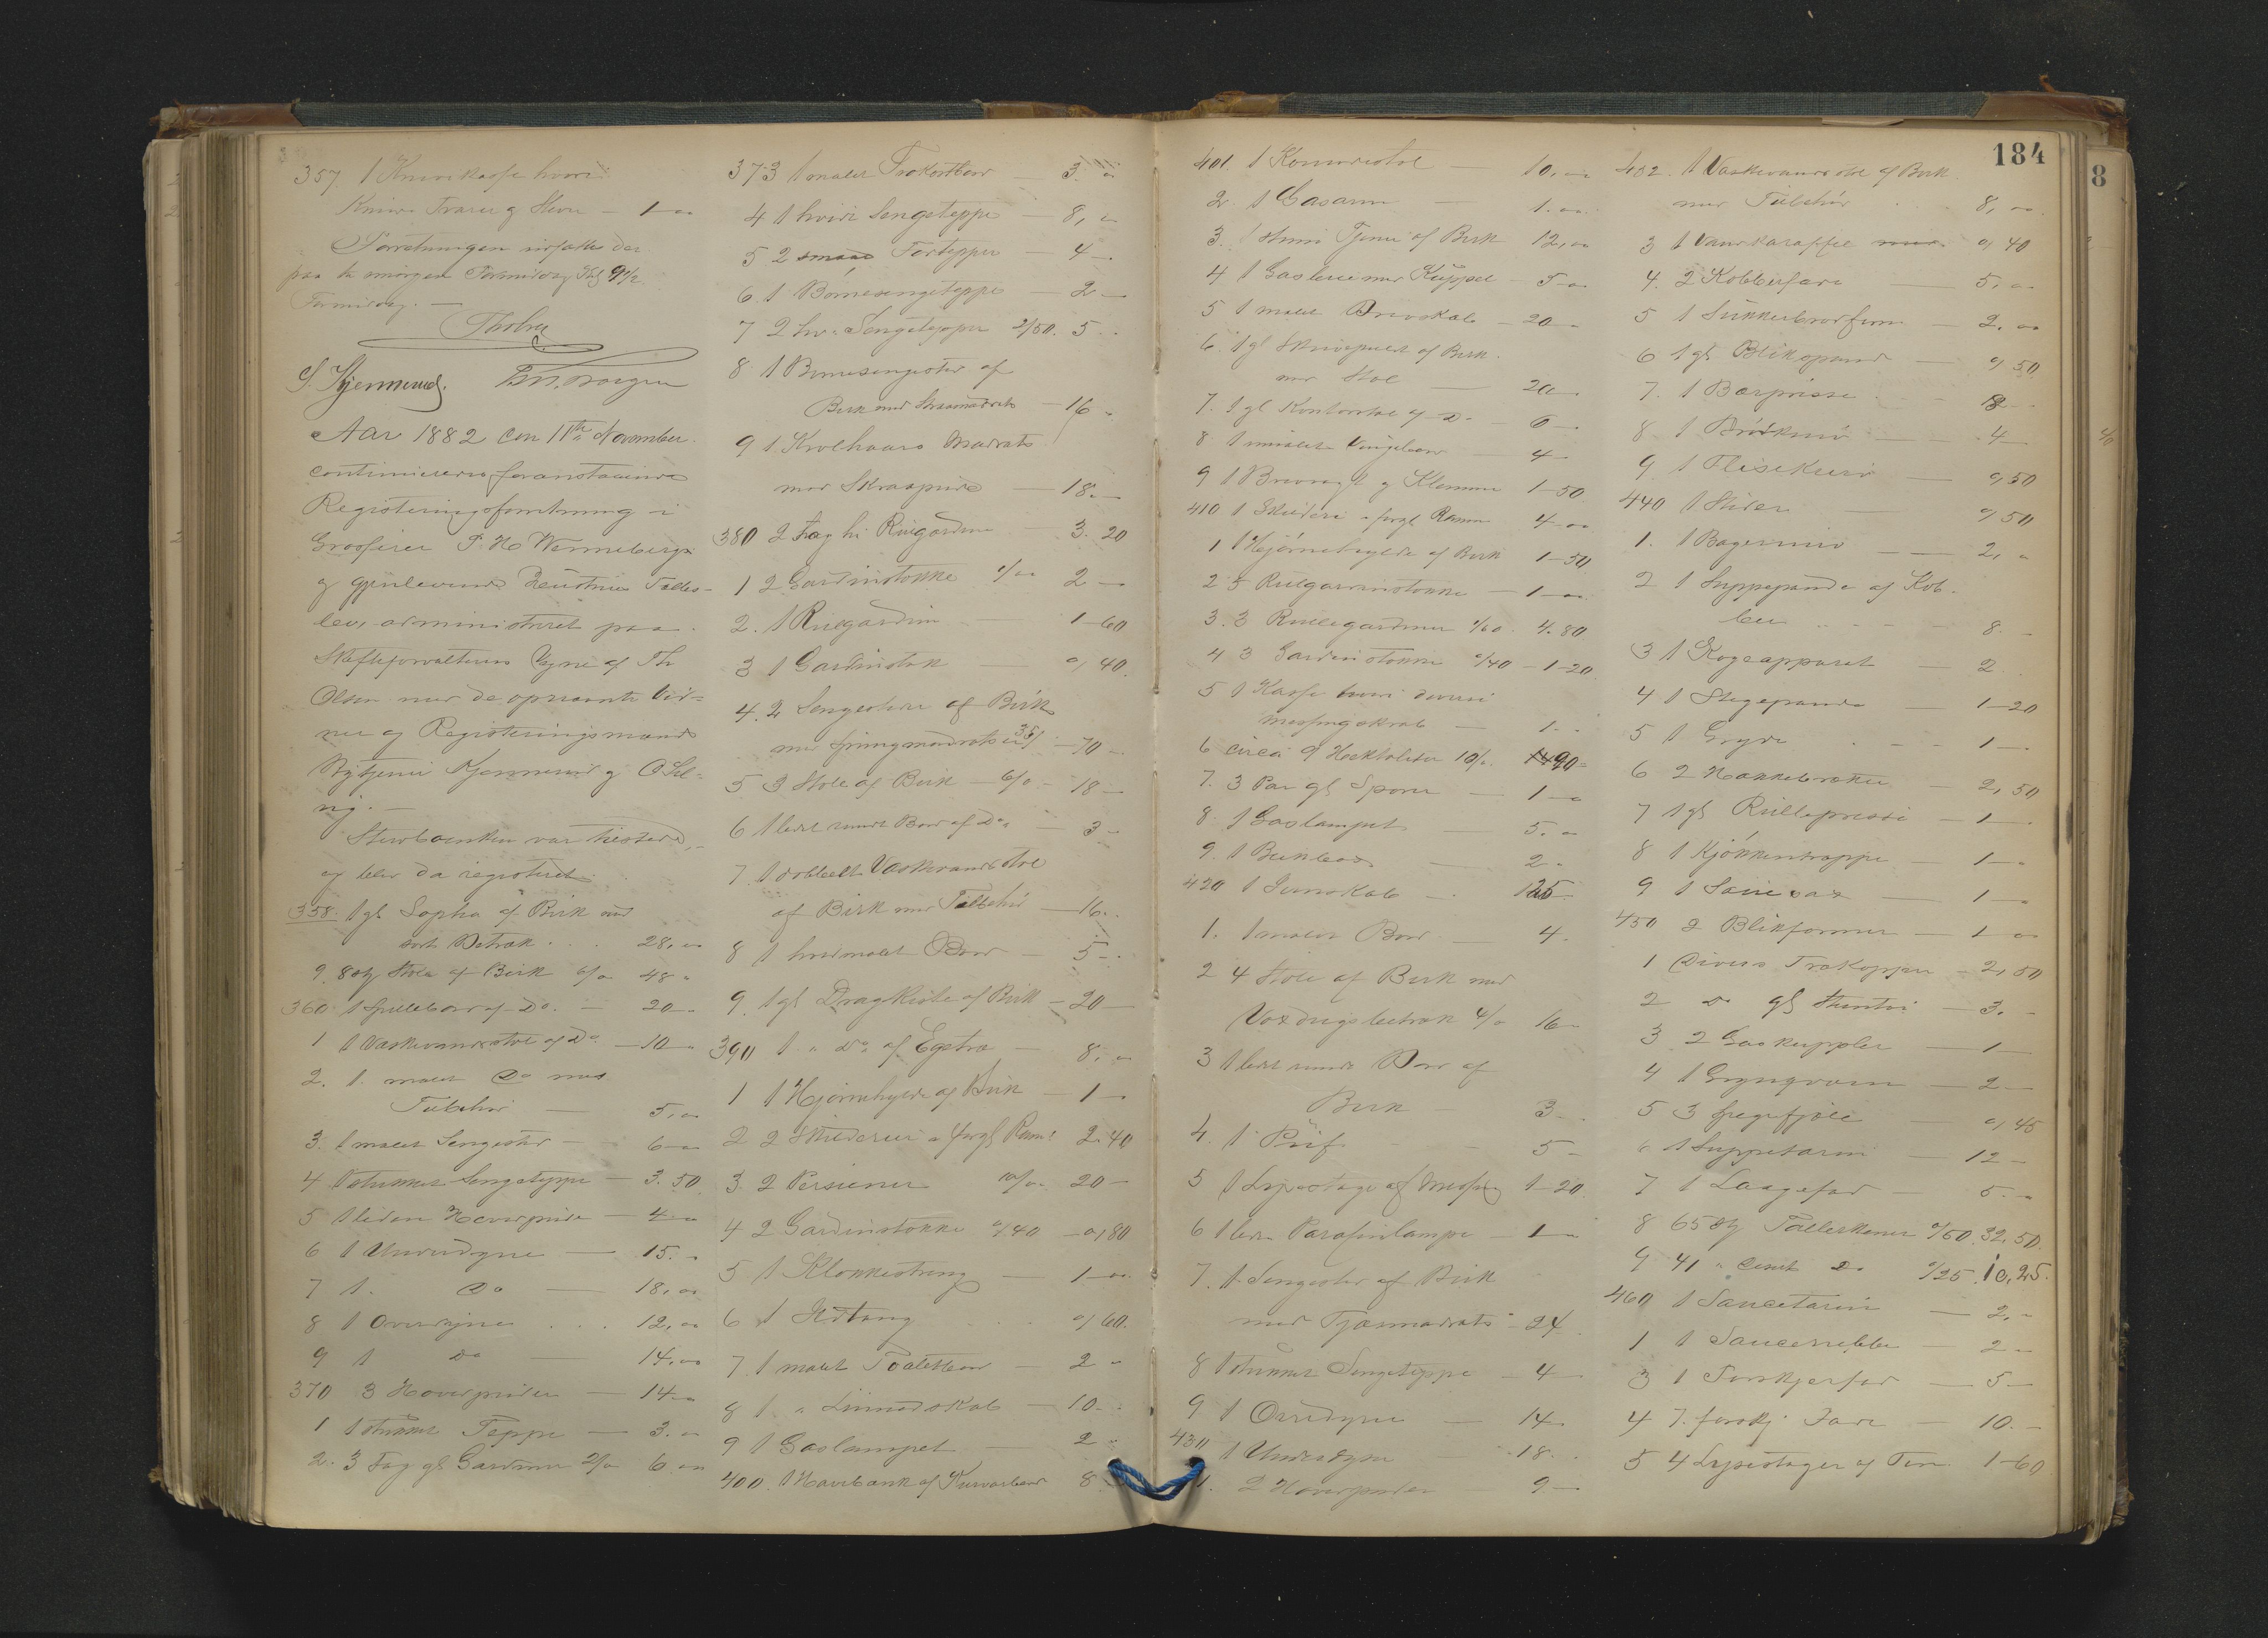 357. 1 Knivkasse hvori
Knive Tvarer og Skeer — 1 —
Forretningen udsattes der
paa til imorgen Formiddag Kl 9 1/2
Formiddag. —
S. Hjermund.
Aar 1882 den 11te November
continueredes foranstaaende
Registreringsforretning i
Grosserer P. H. Wenneberg
og gjenlevende Hustrues Fælles-
bo, administreret paa
Skifteforvalterens Vegne af Th
Olsen med de opnævnte Vid-
ner og Registreringsmænd
og
Sterboenken var tilstede,
og blev da registreret
358. 1 gl Sopha af Birk med
sort Betræk . . . 28,00
9. 8 stk Stole af Birk 6/00 48 "
360 1 Spillebord af Do. — 20 —
1 1 Vaskevandsstol af Do — 10 —
2. 1 malet Do med
Tilbehør — 5,00
3. 1 malet Sengested — 6 —
4 1 strikket Sengeteppe — 3.50
5 1 liden Hovedpude — 4 —
6 1 Underdyne — 15. —
7 1. Do — 18,00
8 1 Overdyne . . . 12,00
9 1 Do — 14,00
370 3 Hovedpuder — 14 —
1 1 strikket Teppe — 3. —
2. 3 Fag gl Gardiner 2/00 6. —
373 1 malet Trekantbord — 3. —
4 1 hvidt Sengeteppe — 8, —
5 2 smaae Forteppe — 4 —
6. 1 Børnesengeteppe — 2 —
7 2 hv. Sengetepper 2/50. 5 —
8 1 Børnesengested af
Birk med Straamadrats — 16 —
9 1. Krølhaars Madrats
med Skraapude — 18. —
380 2 Fag hv Rulgardiner — 3. 20
1 2 Gardinstokke 1/00 2 —
2. 1 Rulgardin — 1-60
3 1 Gardinstok — 0,40.
4. 2 Sengesteder af Birk
med Springmadratser 35/ — 70 —
5 3 Stole af Birk — 6/0 — 18 —
6 1 lidet rundt Bord af Do 3 —
7. 1 dobbelt Vaskevandsstol
af Birk med Tilbehør — 16. —
8 1 hvidmalet Bord — 5 —
9. 1 gl Dragkiste af Birk — 20 —
390 1 " Do af Egetræ — 8,00
1 1 Hjørnehylde af Birk — 1 —
2 2 Skilderier i forgl Ram. 2.40
3 2 Persienner 10/00 20 —
4 2 Gardinstokke 0/40 — 0,80
5 1 Klokkestreng — 1 —
6 1 Ildtang . . . 0,60.
7. 1 malet Toiletbord — 2 —
8 1 " Linnedskab — 10. —
9 1 Gaslampet — 2 —
400. 1 Havebænk af 8 —
401. 1 Komodestol — 10,00
2. 1 Gasarm — 1.00
3. 1 stum Tjener af Birk 12,00
4 1 Gaslire med Kuppel — 5 —
5 1 malet Brevskab — 20 —
6. 1 gl Skrivepult af Birk
med Stol — 20 —
7. 1 gl Kontorstol af Do — 6 —
8 1 umalet — 4 —
9 1 Brevvægt og Klemme 1-50
410 1 Skilderi i forgl Ramme 4 —
1 1 Hjørnehylde af Birk 1-50
2 5 Rulgardinstokke — 1 —
3. 3 Rullegardiner 1/60. 4.80
4 3 Gardinstokke 0/40 — 1-20
5 1 Kasse hvori diverse
Messingskrab — 1. —
6 circa 9 Hektoliter 10/. 90 —
7. 3 Par gl Sporer — 1 —
8. 1 Gaslampet — 5. —
9. 1 — 2 —
420 1 Jernskab — 125 —
1. 1 malet Bord — 4 —
2 4 Stole af Birk med
Voxdugsbetræk 4/0 16 —
3 1 lidet rundt Bord af
Birk — 3 —
4. 1 Puf — 5 —
5 1 Lysestage af Messing 1-20
6 1 liden Parafinlampe — 1 —
7. 1 Sengested af Birk
med Fjærmadrats — 24
8 1 strikket Sengeteppe — 4 —
9 1 Overdyne — 14 —
430 1 Underdyne — 18.
1. 2 Hovedpuder — 9 —
184
432. 1 Vaskevandsstol af Birk
med Tilbehør . 8,00
3 1 Vandkaraffel 0,40
4. 2 Kobberfade — 5,00
5 1 Sukkerbrødform — 2.00
6 1 gl Blikspand — 0,50
7. 1 Bærpresse —
8. 1 — 4 —
9. 1 Flisekurv — 0,50
440 1 — 0,50
1. 1 — 2,00
2 1 Suppepande af Kob-
ber — 8. —
3 1 Kogeapparat — 2
4 1 Stegepande — 1-20
5 1 Gryde — 1 —
6 2 Hakkebrætter — 2,50
7 1 gl Rullepresse — 1 —
8 1 Kjøkkentrappe — 1 —
9 1 — 1 —
450 2 Blikformer — 1 —
1 Divers Trækopper — 2,50
2 Do gl Stentøi — 3. —
3 2 Gaskupler — 1 —
4 1 Grynqværn — 2 —
5 3 — 0,45
6 1 Suppeterrin — 12 —
7 1 Laagefad — 5. —
8 65 stk Tallerkener 0/50. 32,50.
9 41 " Desert Do 0/25. 10,25.
460 1 Sauceterrin — 2,—
1 1 Saucenebbe — 2 —
3 1 — 5 —
4 7. forskj. Fade — 10. —
5 4 Lysestager af Tin 1-60
8